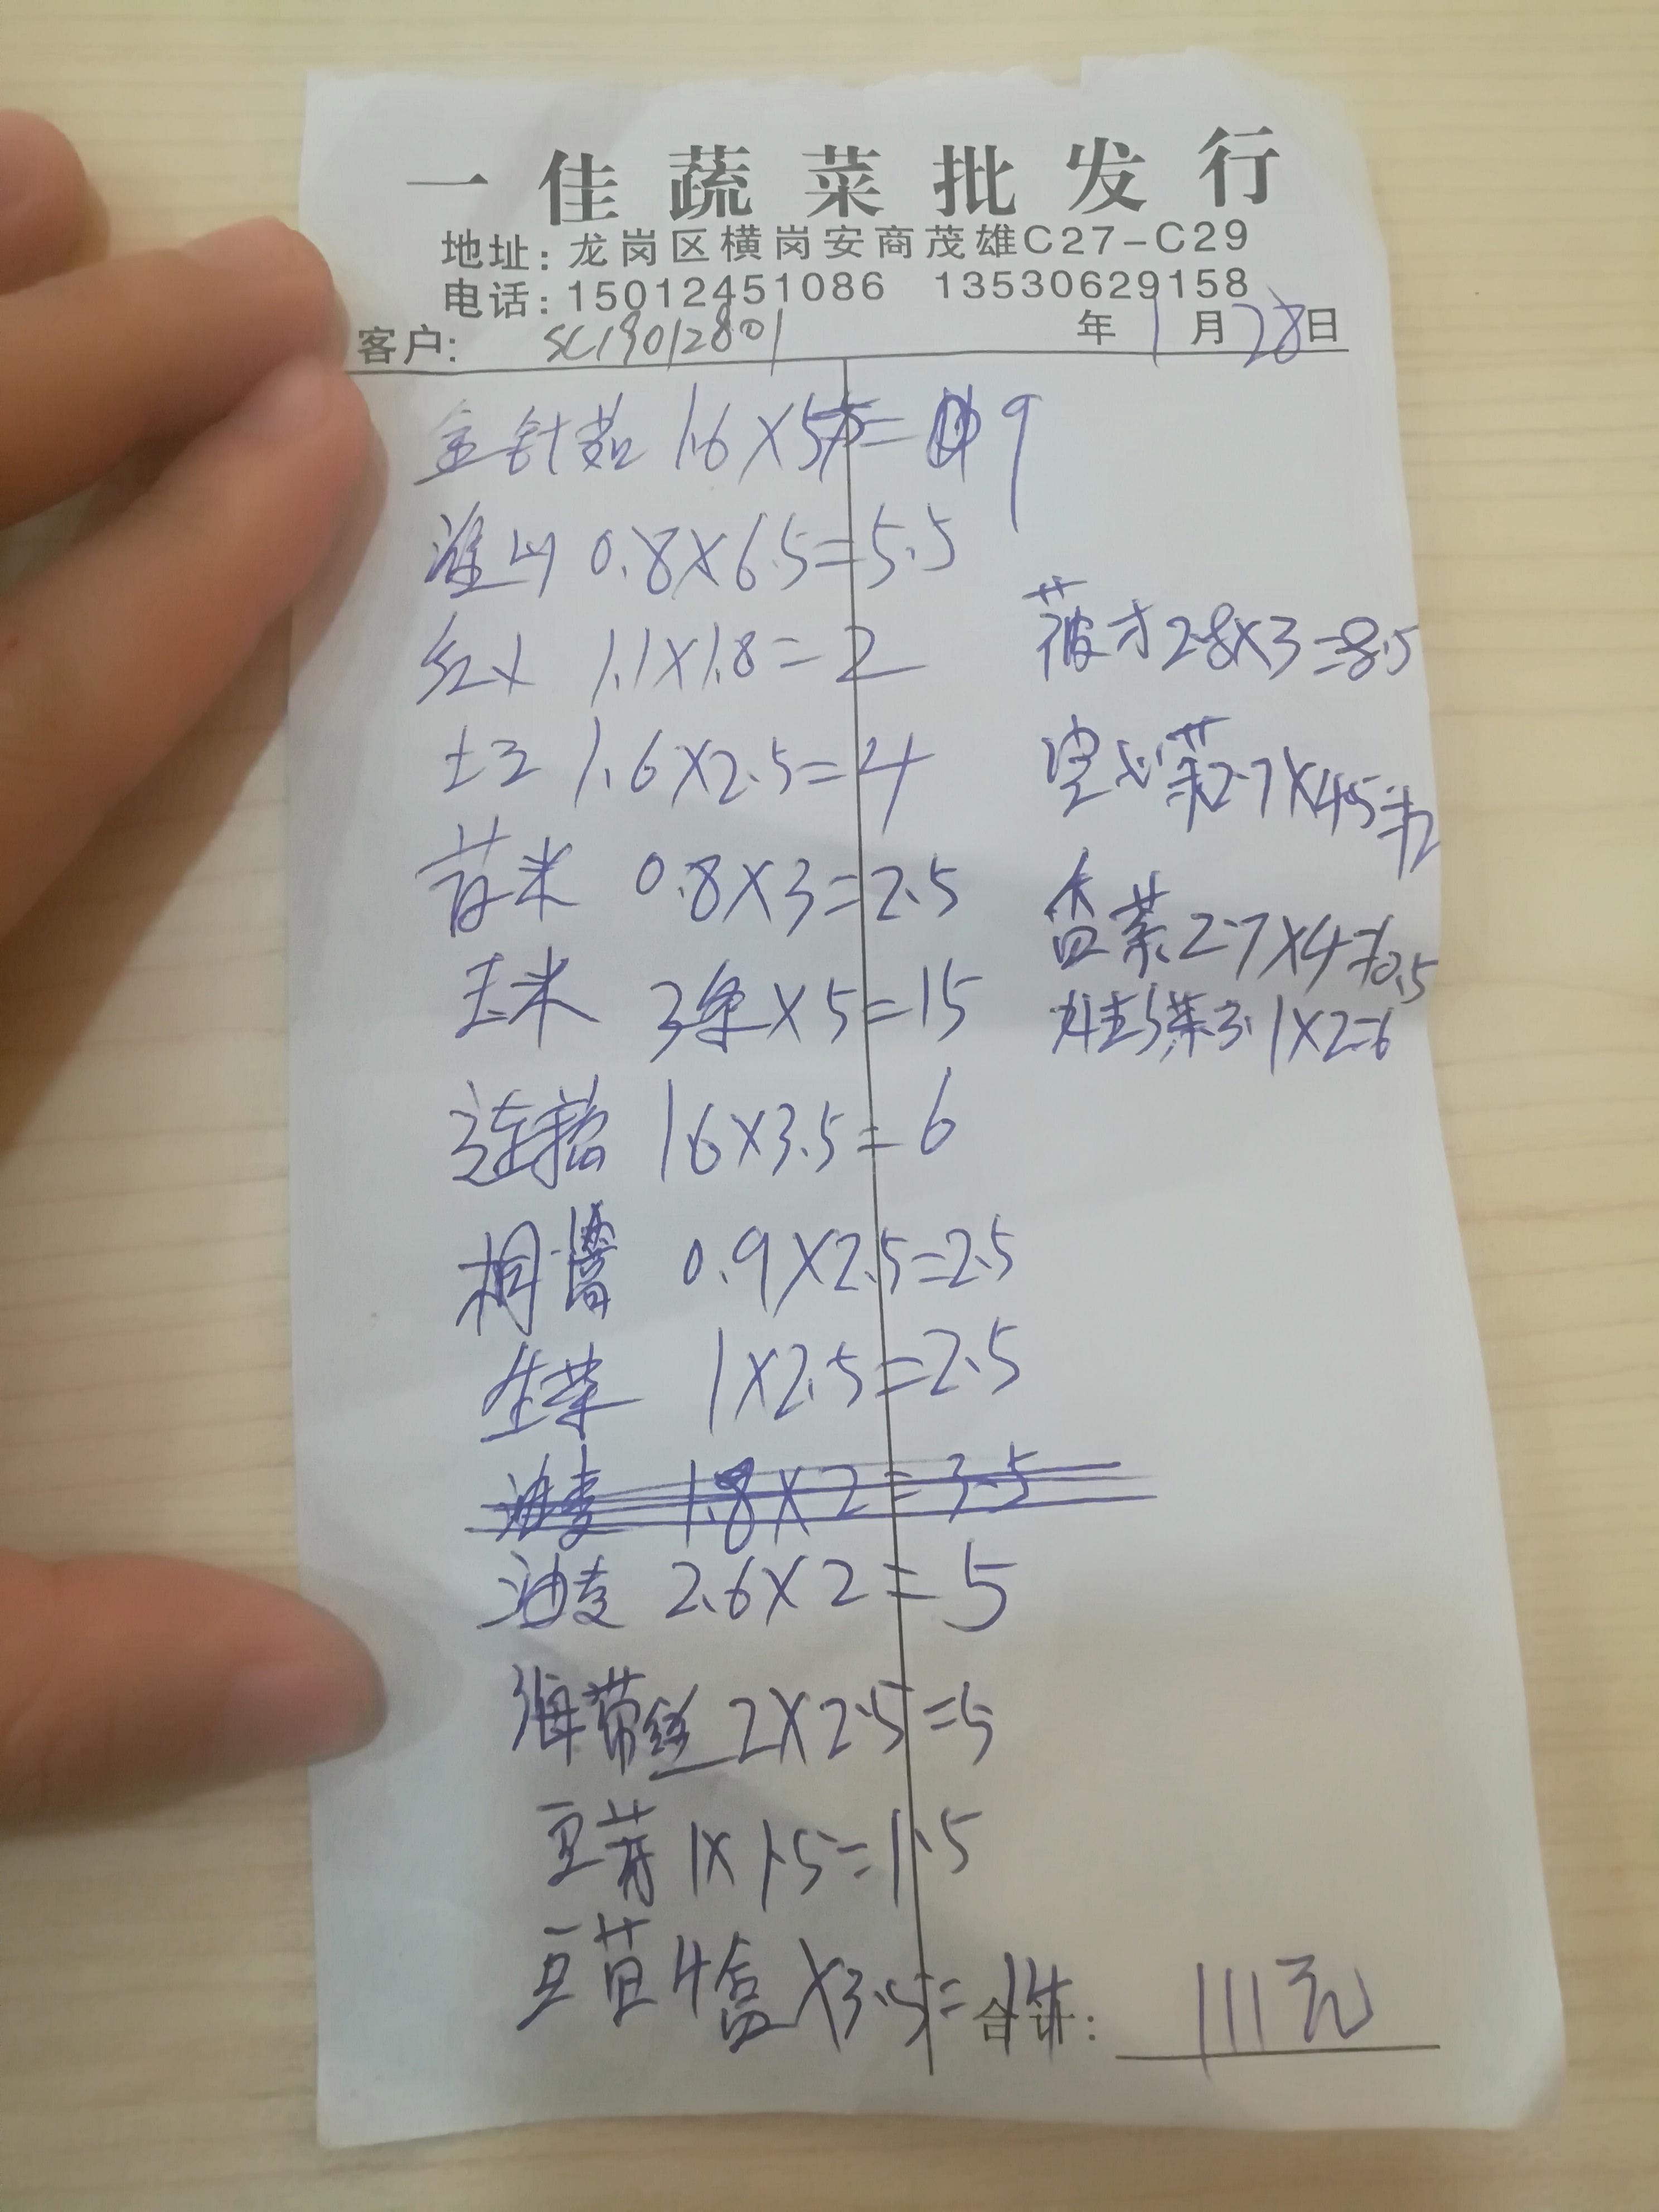 一佳蔬菜批发行
地址：龙岗区横岗安商茂雄C27-C29
电话：15012451086 13530629158
客户： SC19012801 年 1 月 28 日
金针菇 1.6×5.5= 9
淮山 0.8×6.5=5.5
红 1.1×1.8=2
土豆 1.6×2.5=4
苞米 0.8×3=2.5
玉米 3条×5=15
莲藕 1.6×3.5=6
0.9×2.5=2.5
生菜 1×2.5=2.5
油麦 1.8×2=3.5
油麦 2.6×2=5
海带丝 2×2.5=5
豆芽 1×1.5=1.5
豆苗 4盒×3.5=14
合计： 111元
菠才 2.8×3=8.5
空心菜 2.7×4.5=12
香菜 2.7×4=10.5
菜 3.1×2=6